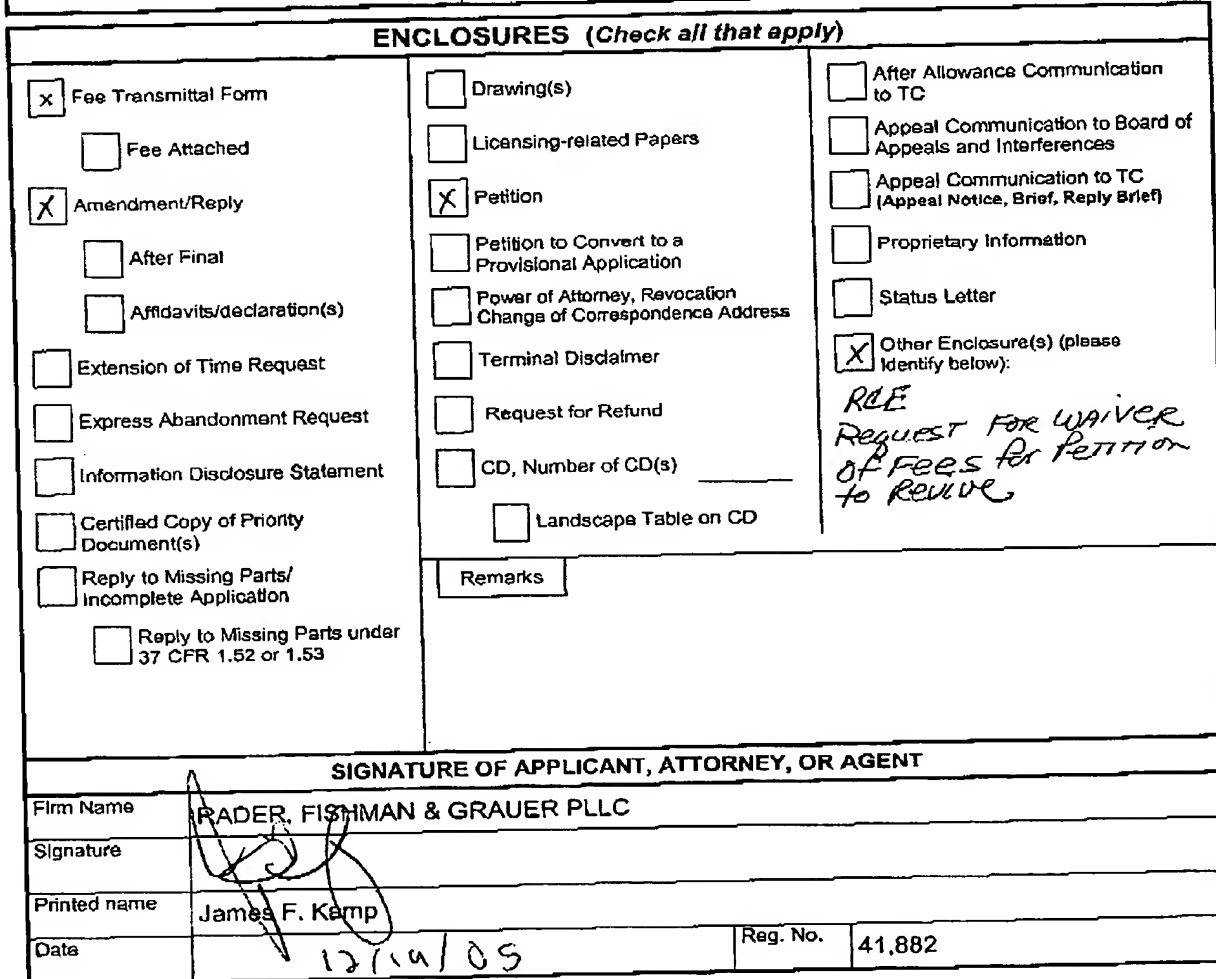 ENCLOSURES (Check all that apply)
x Fee Transmittal Form
Fee Attached
X Amendment/Reply
After Final
Affidavits/declaration(s)
Extension of Time Request
Express Abandonment Request
Information Disclosure Statement
Certified Copy of Priority
Document(s)
Reply to Missing Parts/
Incomplete Application
Reply to Missing Parts under
37 CFR 1.52 or 1.53
Drawing(s)
Licensing-related Papers
X Petition
Petition to Convert to a
Provisional Application
Power of Attorney, Revocation
Change of Correspondence Address
Terminal Disclaimer
Request for Refund
CD, Number of CD(s)
Landscape Table on CD
After Allowance Communication
to TC
Appeal Communication to Board of
Appeals and Interferences
Appeal Communication to TC
(Appeal Notice, Brief, Reply Brief)
Proprietary Information
Status Letter
X Other Enclosure(s) (please
Identify below):
RCE
Request For WAIVER
of Fees for Petition
to Revive
Remarks
SIGNATURE OF APPLICANT, ATTORNEY, OR AGENT
Firm Name RADER, FISHMAN & GRAUER PLLC
Signature
Printed name James F. Kamp
Date 12/19/05 Reg. No. 41,882